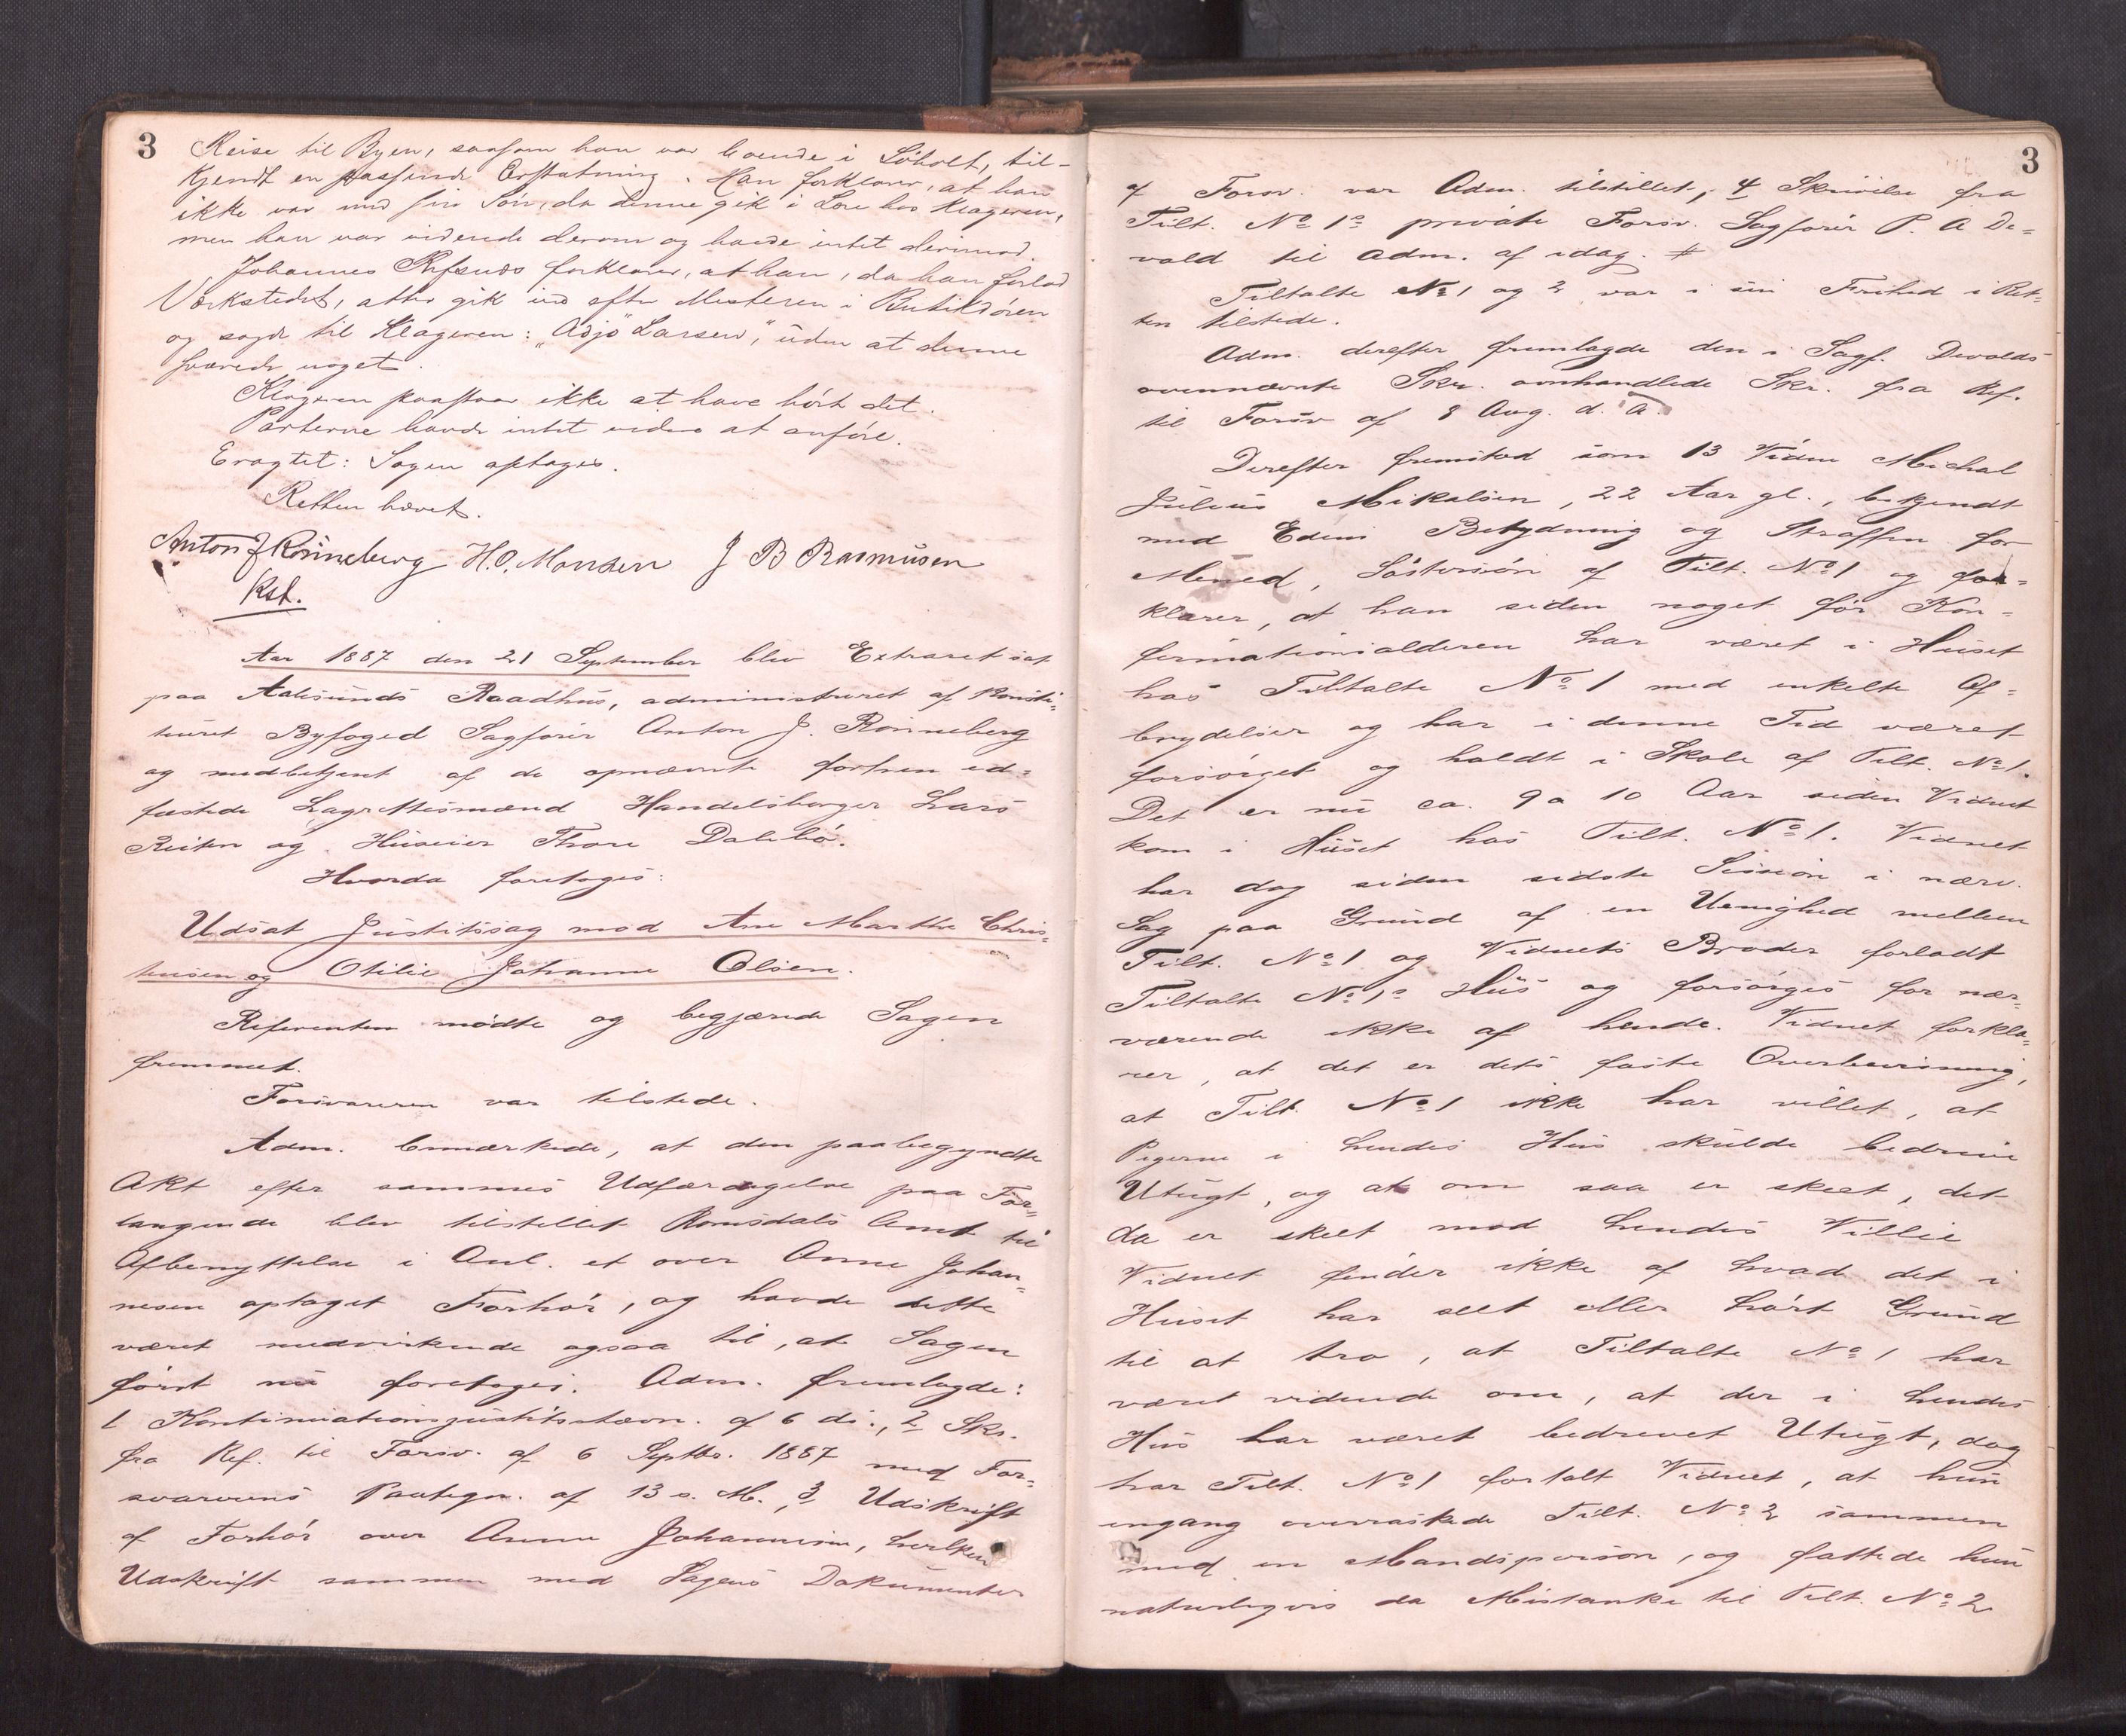 3
Reise til Byen, saasom han var boende i Søholt, til-
kjendt en passende Erstatning. Han forklarer, at han
ikke var med sin Søn, da denne gik i Lære hos Klageren,
men han var vidende derom og havde intet derimod.
Johannes Refsnes forklarer, at han, da han forlod
Værkstedet, atter gik ind efter Mesteren i Butikdøren
og sagde til Klageren: "Adjø Larsen", uden at denne
svarede noget.
Klageren paastaar ikke at have hørt det.
Parterne havde intet videre at anføre.
Eragtet: Sagen optages.
Retten hævet.
Anton J Rönneberg H.O. Monsen J B Rasmusen
Kst.
Aar 1887 den 21 September blev Extraret sat
paa Aalesunds Raadhus, administreret af konsti-
tueret Byfoged Sagfører Anton J. Rønneberg
og medbetjent af de opnævnte forhen ed-
fæstede Lagrettesmænd Handelsborger Lars
Reiten og Huseier Thore Dalebø.
Hvorda foretoges:
Udsat Justitssag mod Ane Marthe Chris-
tensen og Otilie Johanne Olsen.
Referenten mødte og begjærede Sagen
fremmet.
Forsvareren var tilstede.
Adm. bemærkede, at den paabegyndte
Akt efter sammes Udfærdigelse paa For-
langende blev tilstillet Romsdals Amt til
Afbenyttelse i Anl. et over Anne Johan-
nesen optaget Forhør, og havde dette
været medvirkende ogsaa til, at Sagen
først nu foretoges. Adm. fremlagde:
1 Kontinuationsjustitsstævn. af 6 ds., 2 Skr.
fra Ref. til Forsv. af 6 Septbr. 1887 med For-
svarerens Paategn. af 13 s. M., 3 Udskrift
af Forhør over Anne Johannesen, hvilken
Udskrift sammen med Sagens Dokumenter
3
af Forsv. var Adm. tilstillet, 4 Skrivelse fra
Tilt. No 1s private Forsv. Sagfører P. A De-
vold til Adm. af idag. #
Tiltalte No 1 og 2 var i sin Frihed i Ret-
ten tilstede.
Adm. derefter fremlagde den i Sagf. Devolds
ovennævnte Skr. omhandlede Skr. fra Ref.
til Forsv af 8 Aug. d. A.
Derefter fremstod som 13 Vidne Michal
Julius Mikalsen, 22 Aar gl., bekjendt
med Edens Betydning og Straffen for
Mened, Søstersøn af Tilt. No 1 og for-
klarer, at han siden noget før Kon-
firmationsalderen har været i Huset
hos Tiltalte No 1 med enkelte Af-
brydelser og har i denne Tid været
forsørget og holdt i Skole af Tilt. No 1.
Det er nu ca. 9 a 10 Aar siden Vidnet
kom i Huset hos Tilt. No 1. Vidnet
har dog siden sidste Session i nærv.
Sag paa Grund af en Uenighed mellem
Tilt. No 1 og Vidnets Broder forladt
Tiltalte No 1s Hus og forsørges for nær-
værende ikke af hende. Vidnet forkla-
rer, at det er dets faste Overbevisning,
at Tilt. No 1 ikke har villet, at
Pigerne i hendes Hus skulde bedrive
Utugt, og at om saa er skeet, det
da er skeet mod hendes Villie
Vidnet finder ikke af hvad det i
Huset har seet eller hørt Grund
til at tro, at Tiltalte No 1 har
været vidende om, at der i hendes
Hus har været bedrevet Utugt, dog
har Tilt. No 1 fortalt Vidnet, at hun
engang overraskede Tilt. No 2 sammen
med en Mandsperson, og fattede hun
naturligvis da Mistanke til Tilt. No 2